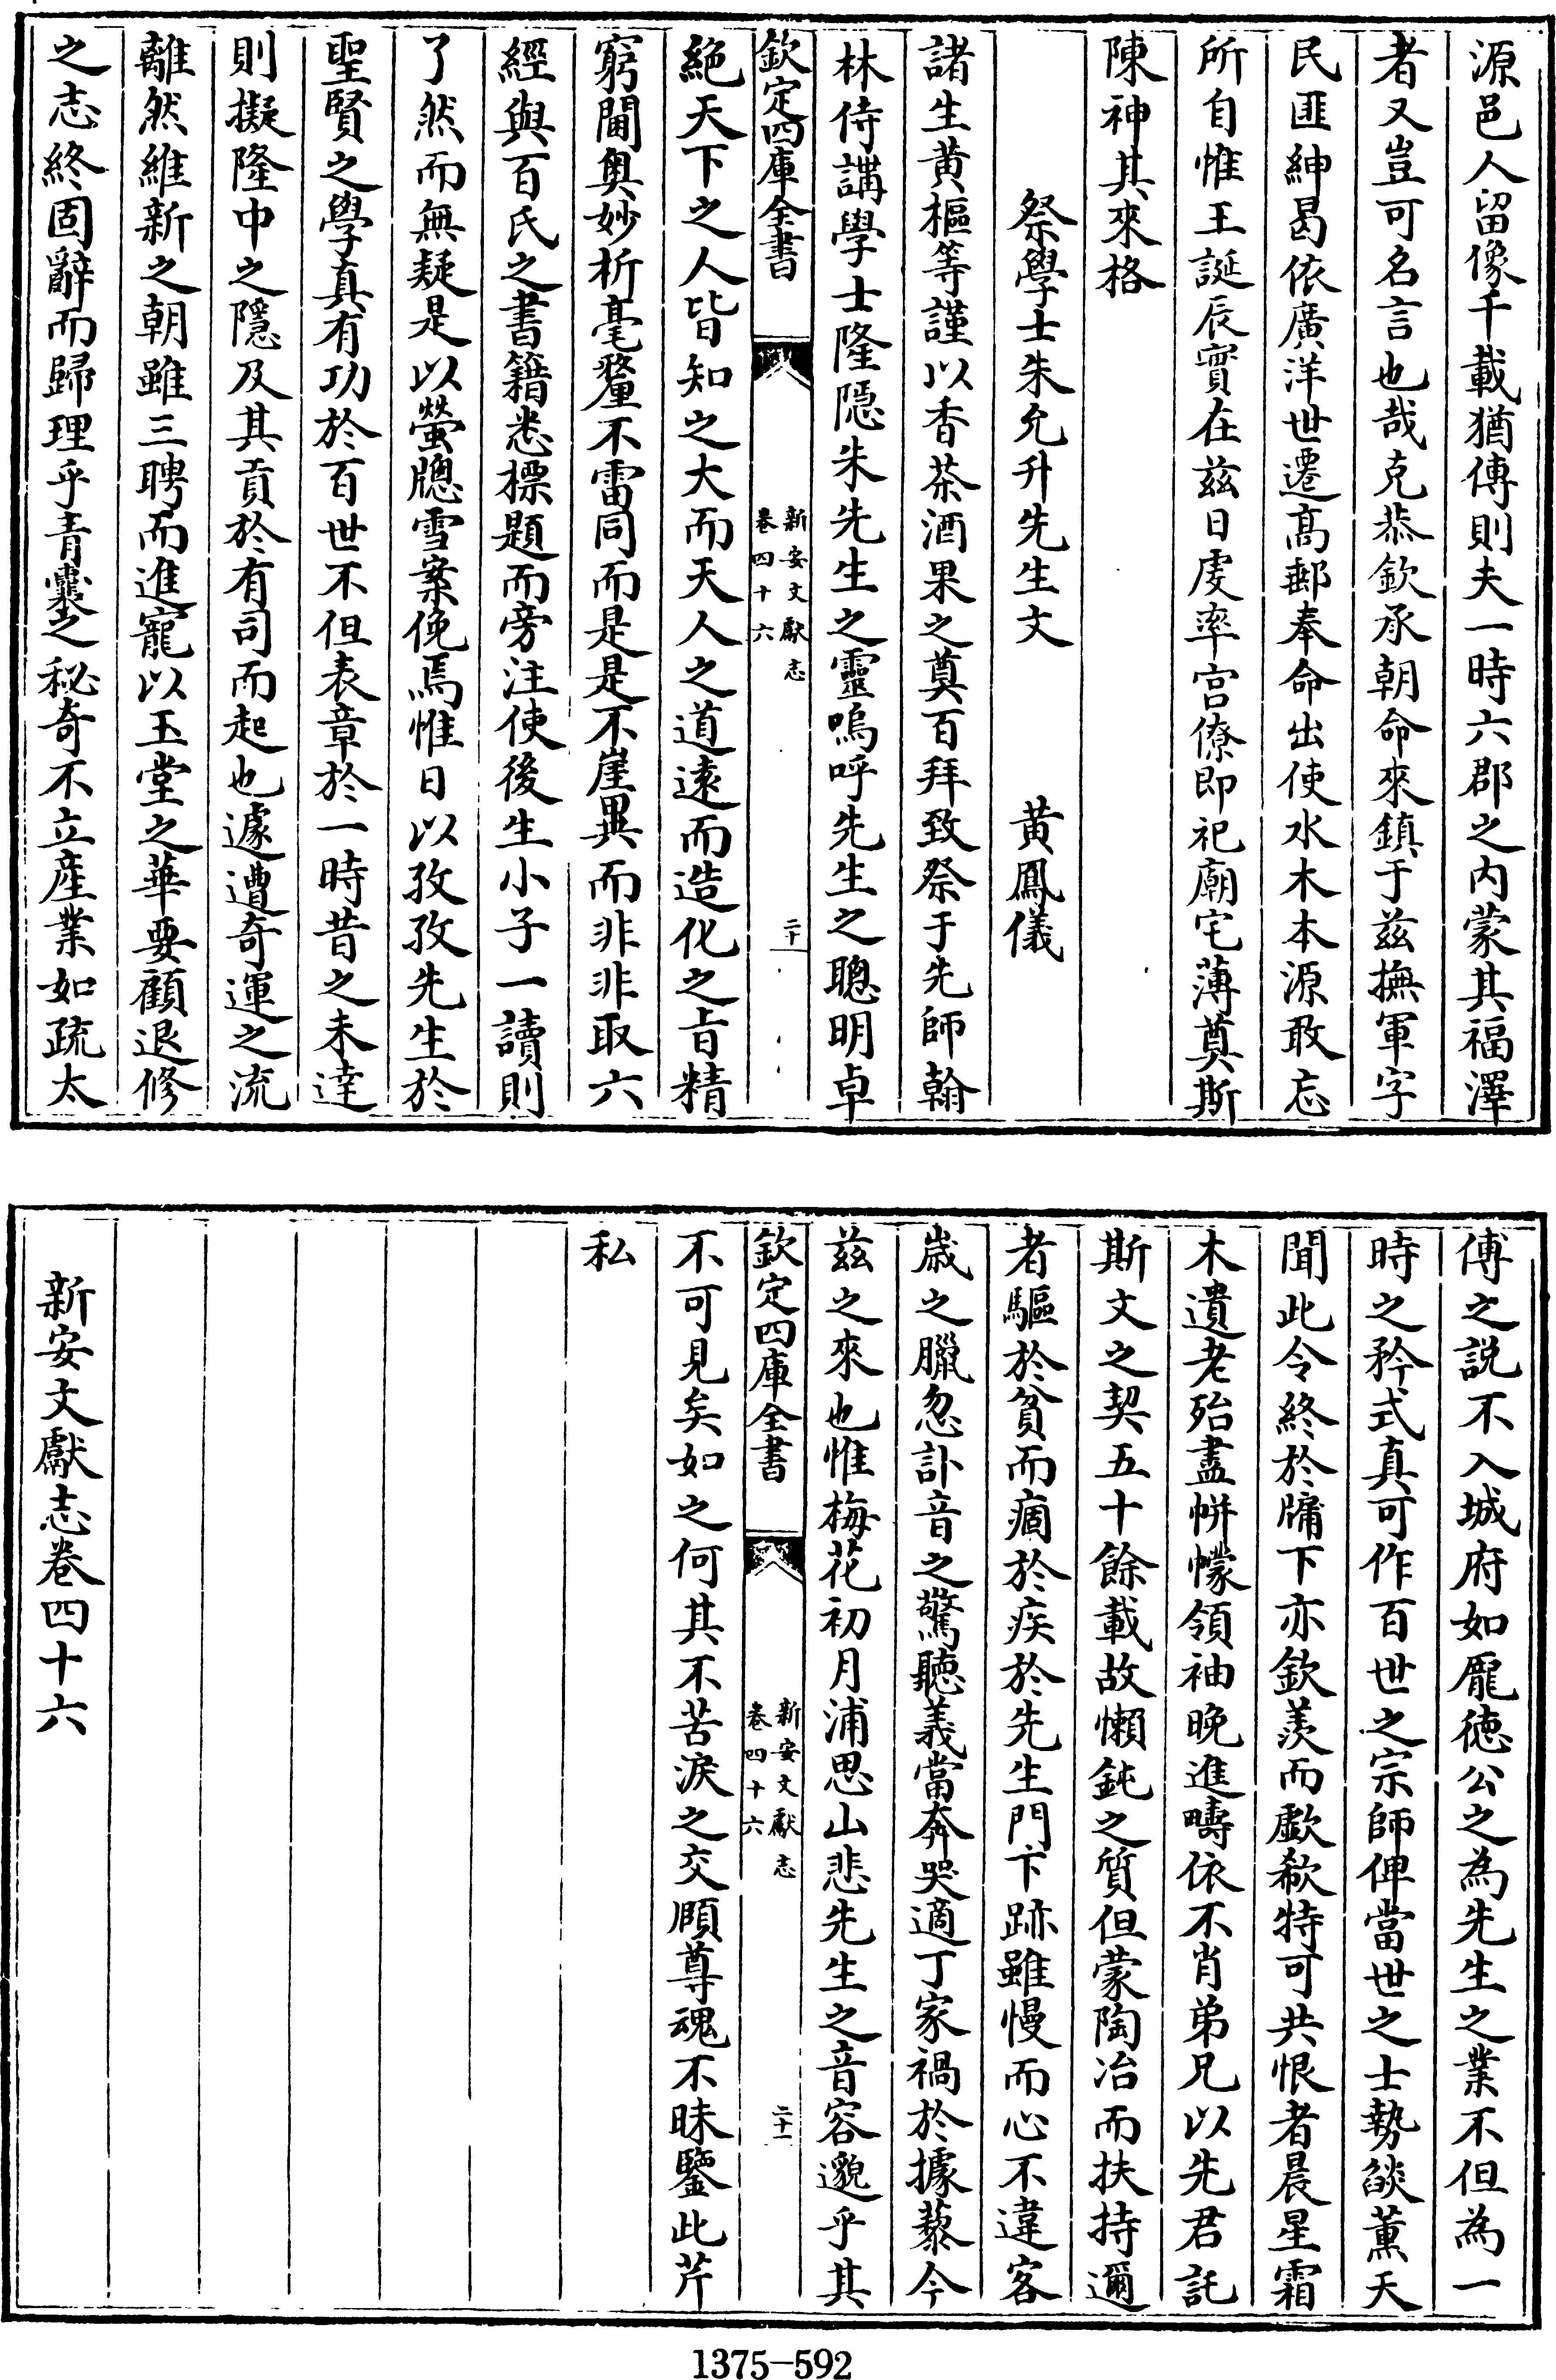 源邑人留像千載猶傳則夫一時六郡之内蒙其福澤
者又豈可名言也哉克恭欽承朝命來鎮于兹撫軍字
民匪紳曷依廣洋世遷髙郵奉命出使水木本源敢忘
所自惟王誕辰實在兹日虔率宫僚即祀廟宅薄奠斯
陳神其來格
祭學士朱允升先生文 黄鳳儀
諸生黄樞等謹以香茶酒果之奠百拜致祭于先師翰
林侍講學士隆隱朱先生之靈嗚呼先生之聰明卓
欽定四庫全書
新安文獻志
卷四十六
二十
絶天下之人皆知之大而天人之道遠而造化之㫖精
窮閫奥妙析毫釐不雷同而是是不崖異而非非取六
經與百氏之書籍悉標題而旁注使後生小子一讀則
了然而無疑是以螢牕雪案俛焉惟日以孜孜先生於
聖賢之學真有功於百世不但表章於一時昔之未逹
則擬隆中之隱及其貢於有司而起也遽遭奇運之流
離然維新之朝雖三聘而進寵以玉堂之華要顧退修
之志終固辭而歸理乎青囊之秘奇不立産業如疏太
傅之説不入城府如龎徳公之為先生之業不但為一
時之矜式真可作百世之宗師俾當世之士勢燄薰天
聞此令終於牖下亦欽羨而歔欷特可共恨者晨星霜
木遺老殆盡帡幪領袖晚進疇依不肖弟兄以先君託
斯文之契五十餘載故懶鈍之質但蒙陶冶而扶持邇
者驅於貧而痼於疾於先生門下跡雖慢而心不違客
歲之臘忽訃音之驚聽義當奔哭適丁家禍於據藜今
兹之來也惟梅花初月浦思山悲先生之音容邈乎其
欽定四庫全書
新安文獻志
卷四十六
二十一
不可見矣如之何其不苦淚之交頤尊魂不昧鑒此芹
私
新安文獻志卷四十六
1375-592